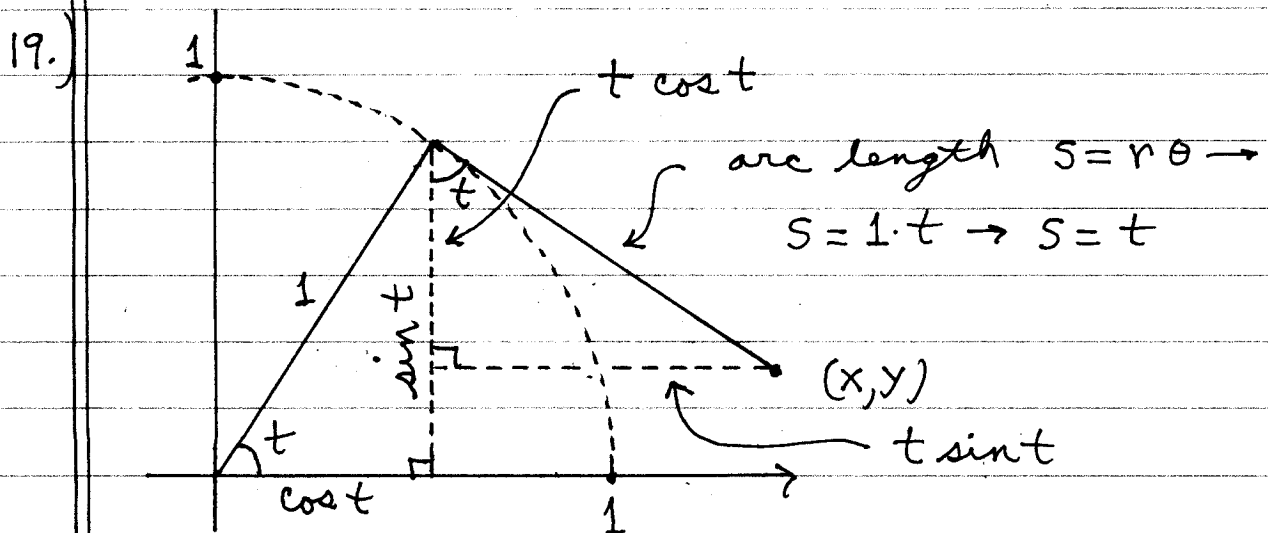 19.)
1
t cos t
arc length S = r θ →
t
S = 1·t → S = t
1
sin t
(x,y)
t
t sin t
cos t
1